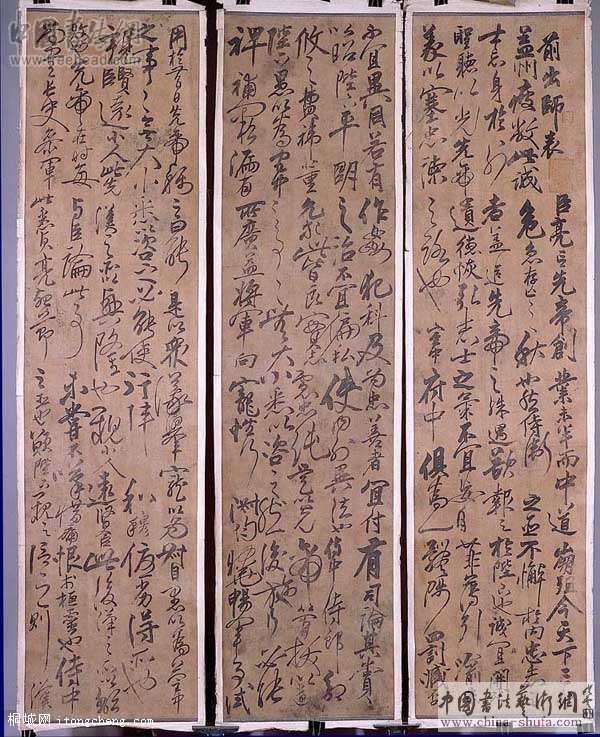 中国书法艺术網
www.freehead.com
前出師表
臣亮言先帝創業未半而中道崩殂今天下三
益州疲敝此誠危急存亡之秋也然侍衛之臣不懈於內忠志
士忘身於外者蓋追先帝之殊遇欲報之於陛下也誠宜開
聖聽以光先帝遺德恢弘志士之氣不宜妄自菲薄引喻
義以塞忠諫之路也宮中府中俱為一體陟罰臧否
不宜異同若有作姦犯科及為忠善者宜付有司論其賞
以昭陛下平明之治不宜偏私使內外異法也侍中侍郎郭
攸之費禕董允此皆良實志慮忠純是以先帝簡拔以遺
陛下愚以為宮中之事事無大小悉以諮之然後施行必能
裨補闕漏有所廣益將軍向寵性行淑均曉暢軍事試
用於昔日先帝稱之曰能是以眾議舉寵以為督愚以為營中
之事事無大小悉以諮之必能使行陣和睦優劣得所也
親賢臣遠小人此先漢所以興隆也親小人遠賢臣此後漢之所以傾
頹先帝在時每與臣論此事未嘗不歎息痛恨於桓靈也侍中
尚書長史參軍此悉貞亮死節之臣也願陛下親之信之則漢
桐城网 itongcheng.com
中国書法藝術網
www.china-shufa.com